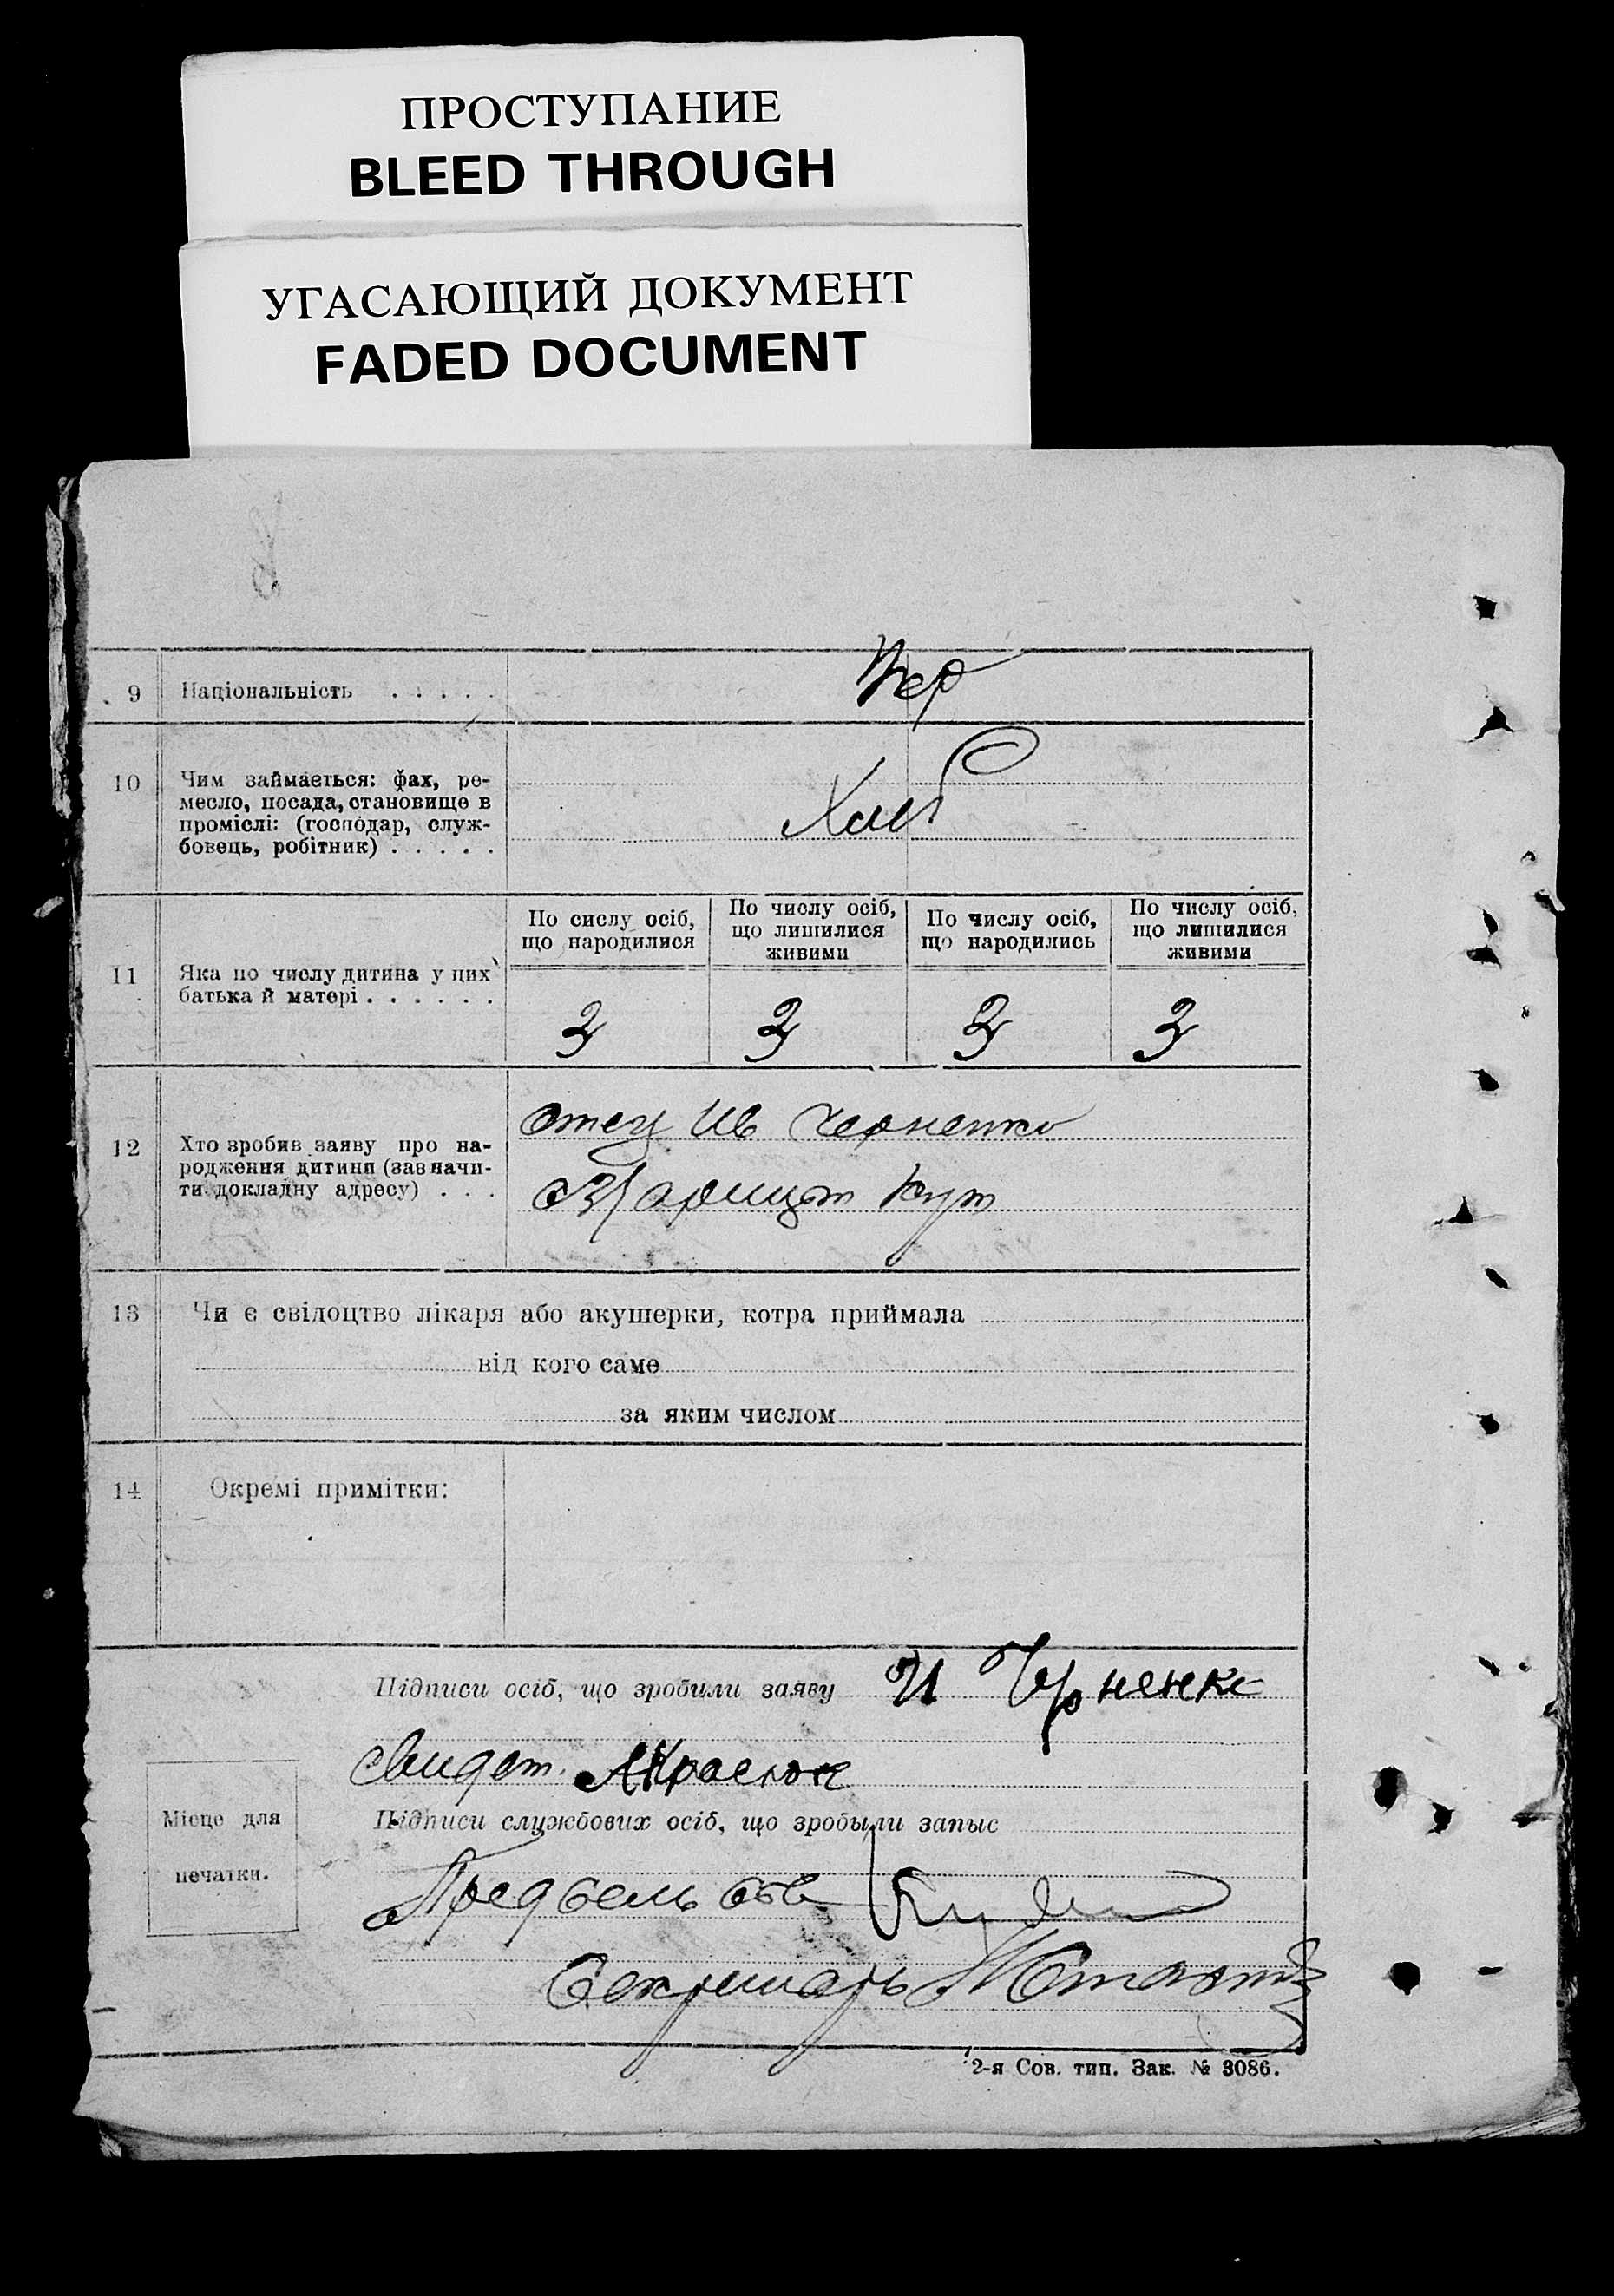 ПРОСТУПАНИЕ
BLEED THROUGH
УГАСАЮЩИЙ ДОКУМЕНТ
FADED DOCUMENT
9 Національність . . . . . Укр
10 Чим займається: фах, ре-
месло, посада, становище в
проміслі: (господар, служ-
бовець, робітник) . . . . . Хлеб
11 Яка по числу дитина у цих
батька й матері . . . . . .
По сислу осіб,
що народилися
По числу осіб,
що лишилися
живими
По числу осіб,
що народились
По числу осіб,
що лишилися
живими
3 3 3 3
12 Хто зробив заяву про на-
родження дитини (зазначи-
ти докладну адресу) . . .
отец Ив Черненко
Кут
13 Чи є свідоцтво лікаря або акушерки, котра приймала
від кого саме
за яким числом
14 Окремі примітки:
Підписи осіб, що зробили заяву И Черненко
Свидет.
Підписи службових осіб, що зробыли запыс
Місце для
печатки.
Пред сель
Секретарь
2-я Сов. тип. Зак. № 3086.